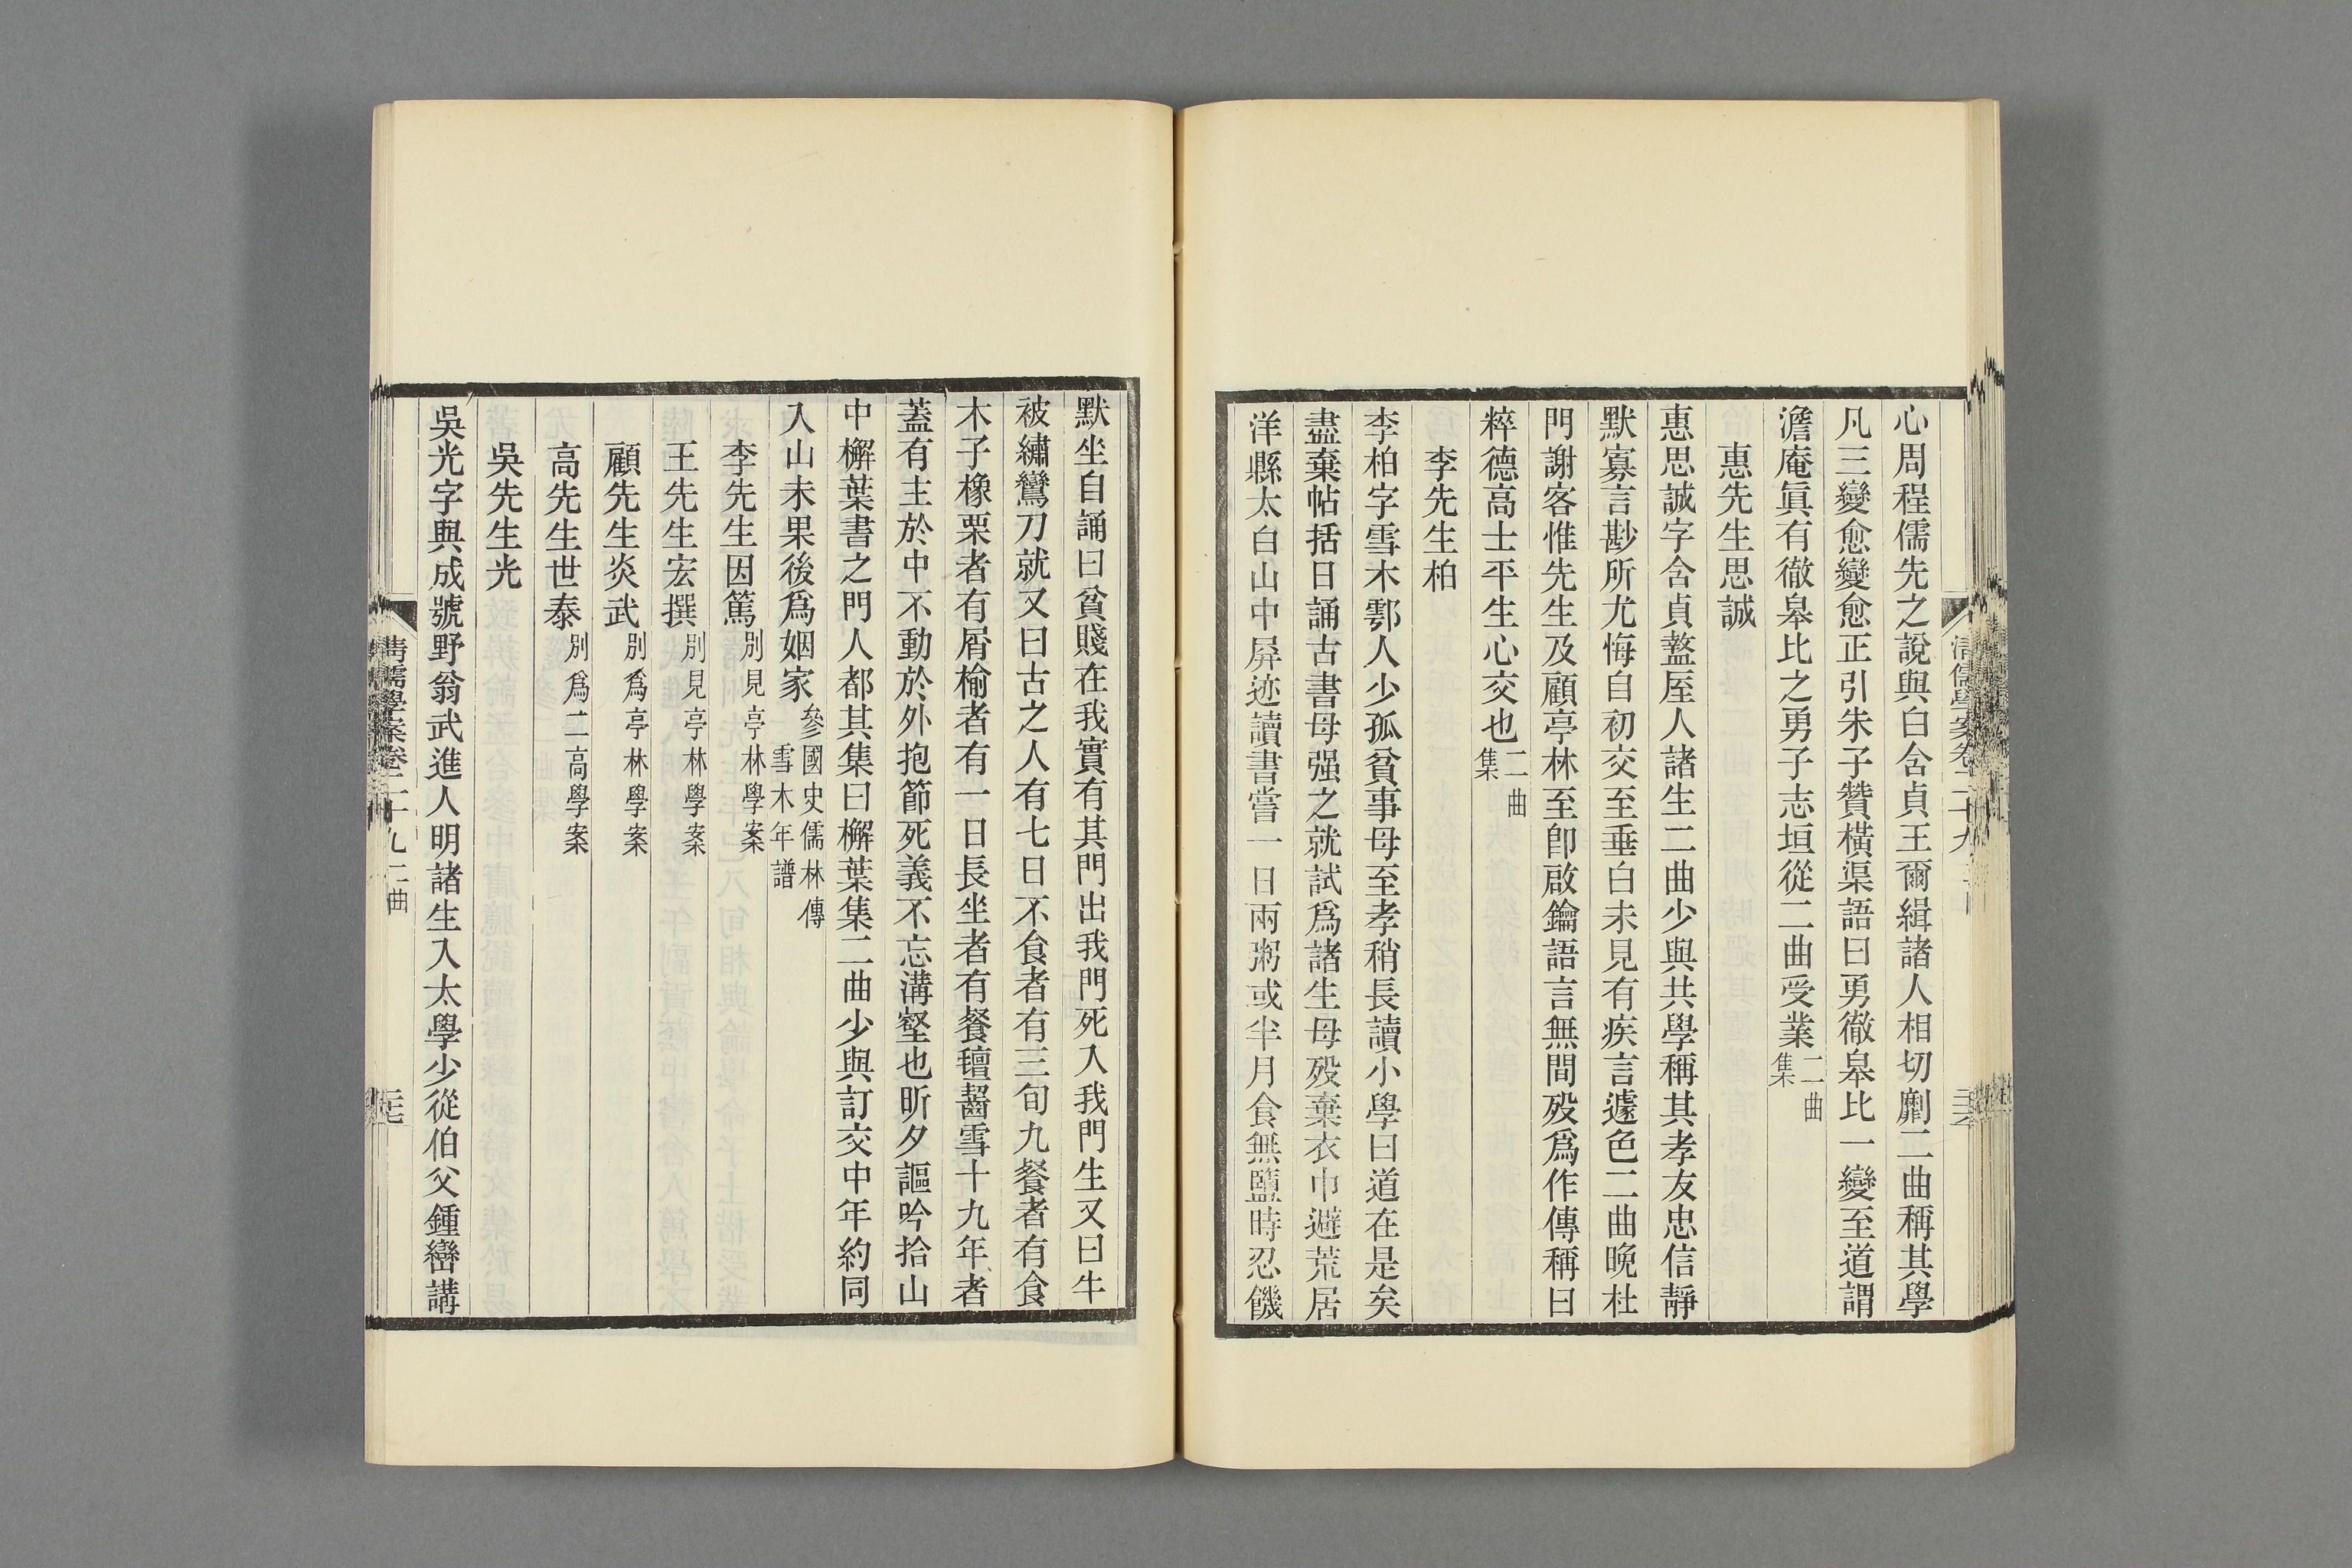 心周程儒先之說與白含貞王爾緝諸人相切劘二曲稱其學
凡三變愈變愈正引朱子贊橫渠語曰勇徹皋比一變至道謂
澹庵眞有徹皋比之勇子志垣從二曲受業二曲集
惠先生思誠
惠思誠字含貞盩厔人諸生二曲少與共學稱其孝友忠信靜
默寡言尠所尤悔自初交至垂白未見有疾言遽色二曲晚杜
門謝客惟先生及顧亭林至卽啟鑰語言無間歿爲作傳稱曰
粹德高士平生心交也二曲集
李先生柏
李柏字雪木鄠人少孤貧事母至孝稍長讀小學曰道在是矣
盡棄帖括日誦古書母强之就試爲諸生母歿棄衣巾避荒居
洋縣太白山中屛迹讀書嘗一日兩粥或半月食無鹽時忍饑
默坐自誦曰貧賤在我實有其門出我門死入我門生又曰牛
被繡鸞刀就又曰古之人有七日不食者有三旬九餐者有食
木子橡栗者有屑榆者有一日長坐者有餐氊齧雪十九年者
蓋有主於中不動於外抱節死義不忘溝壑也昕夕謳吟拾山
中檞葉書之門人都其集曰檞葉集二曲少與訂交中年約同
入山未果後爲姻家參國史儒林傳雪木年譜
李先生因篤別見亭林學案
王先生宏撰別見亭林學案
顧先生炎武別爲亭林學案
高先生世泰別爲二高學案
吳先生光
吳光字與成號野翁武進人明諸生入太學少從伯父鍾巒講
清儒學案卷二十九二曲